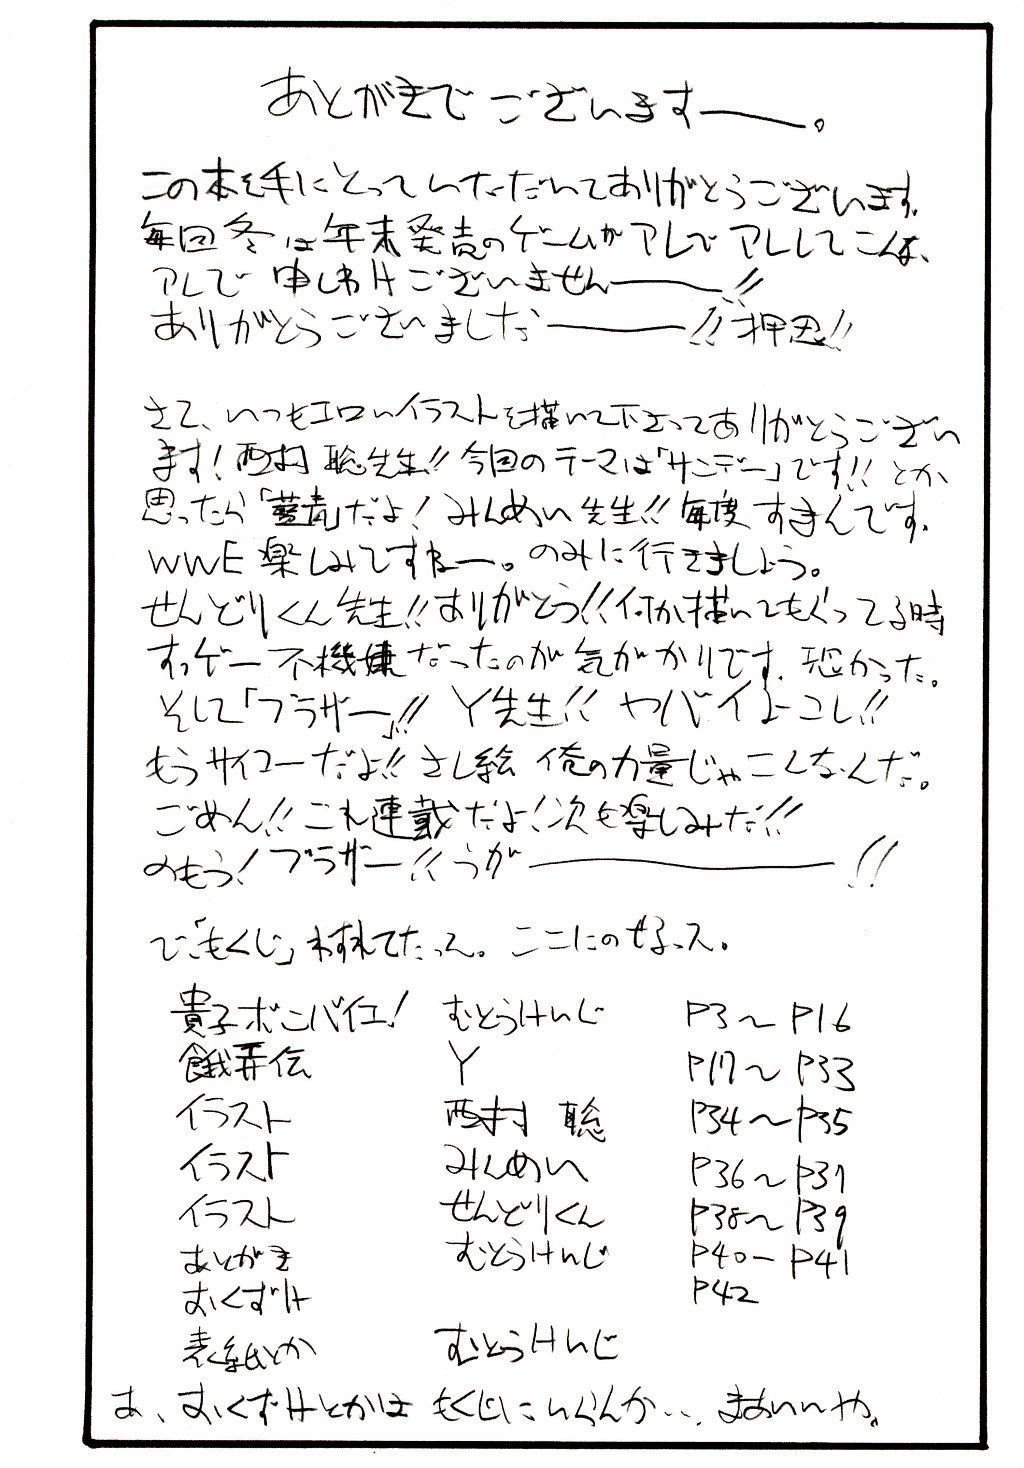 あとがきでございますー。
この本を手にとっていただいてありがとうございます。
毎回冬は年末発売のゲームがアレでアレしてこんな、
アレで申しわけございませんー!!
ありがとうございましたー!!押忍!!
さて、いつもエロいイラストを描いて下さってありがとうござい
ます!西村聡先生!!今回のテーマは「サンデー」です!!とか
思ったら「藍青」だよ!みんめい先生!!毎度すまんです。
WWE楽しみですねー。のみに行きましょう。
せんどりくん先生!!ありがとう!!何か描いてもらってる時
すっゲー不機嫌だったのが気がかりです。恐かった。
そして「ブラザー」!!Y先生!!ヤバイよコレ!!
もうサイコーだよ!!さし絵俺の力量じゃこんなんだ。
ごめん!!これ連載だよ!次も楽しみだ!!
のもう!ブラザー!!うがー!!
で、「もくじ」わすれてたって。ここにのせるっス。
貴子ボンバイエ! むとうけいじ P3〜P16
餓弄伝 Y P17〜P33
イラスト 西村 聡 P34〜P35
イラスト みんめい P36〜P37
イラスト せんどりくん P38〜P39
あとがき むとうけいじ P40〜P41
おくずけ P42
表紙とか むとうけいじ
あ、おくずけとかはもくじにいらんか…まあいいや。